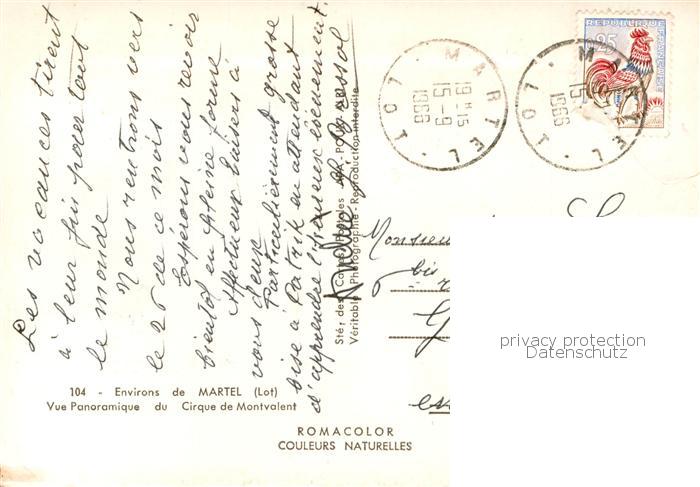 Les vacances tirent
à leur fin pour tout
le monde
Nous rentrons vers
le 26 de ce mois
Espérons vous revoir
bientôt en pleine forme
Affectueux baisers à
vous deux
Particulièrement grosse
bise à Patrik en attendant
d'apprendre l'heureux évènement.
Sté des Cartes Postales APA-POUX - ALBI
Véritable Photographie - Reproduction interdite
104 - Environs de MARTEL (Lot)
Vue Panoramique du Cirque de Montvalent
ROMACOLOR
COULEURS NATURELLES
MARTEL
19H15
15-9
1966
LOT
REPUBLIQUE FRANÇAISE
0,25
MARTEL
15
1966
LOT
Monsieu
bis
privacy protection
Datenschutz